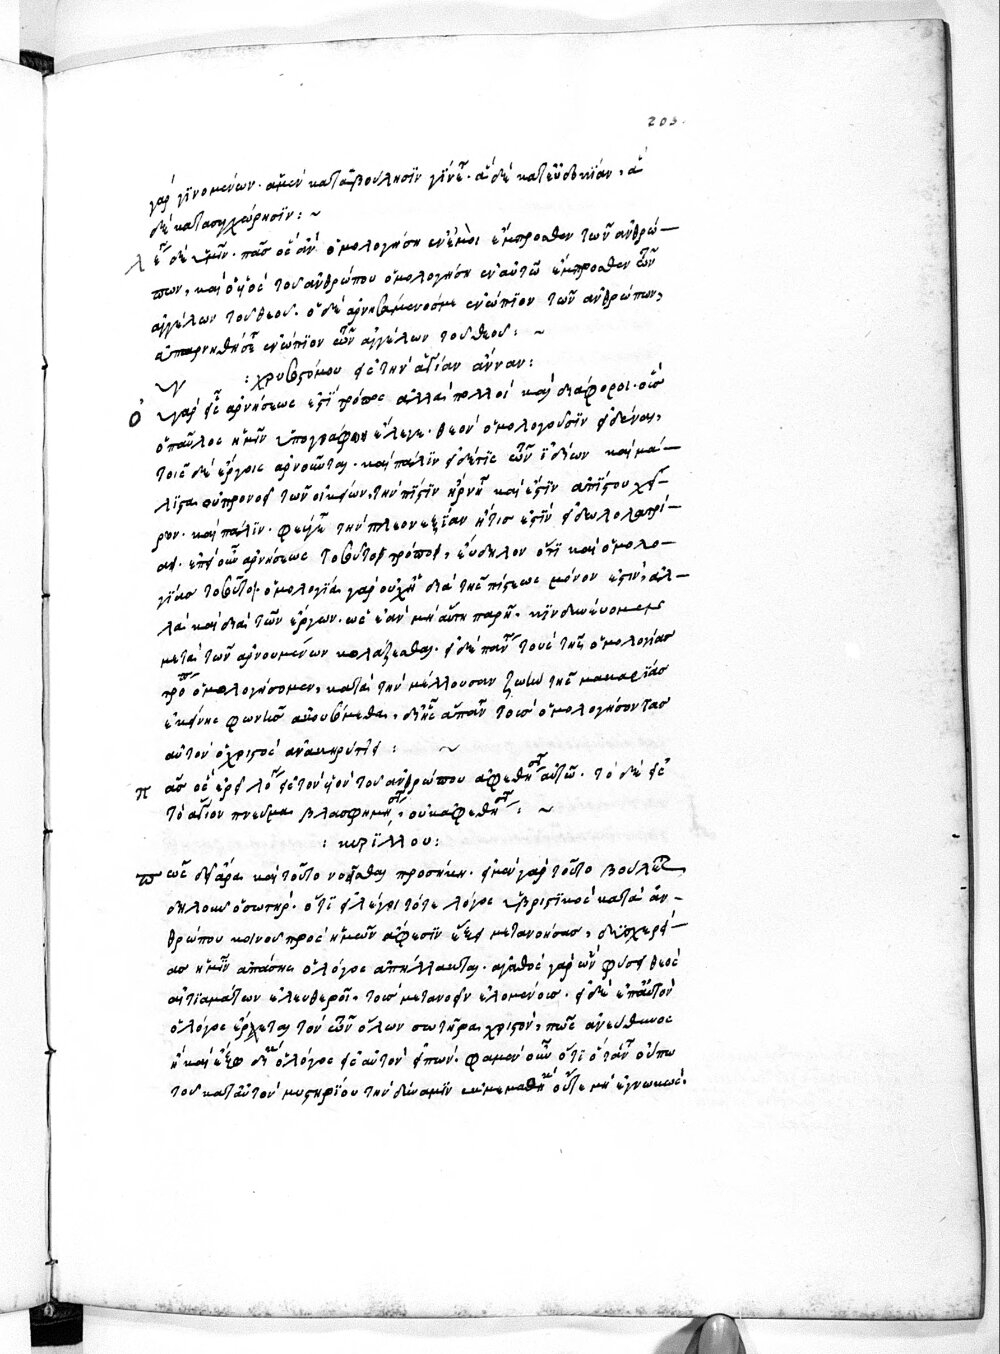 203.
γὰρ γινομένων. ἃ μὲν κατὰ βούλησιν γίνεται. ἃ δὲ κατ εὐδοκίαν, ἃ
δὲ κατὰ συγχώρησιν: ~
λέγω δὲ ὑμῖν. πᾶς ὃς ἂν ὁμολογήση ἐν ἐμοὶ ἔμπροσθεν τῶν ἀνθρώ—
πων, καὶ ὁ υἱὸς τοῦ ἀνθρώπου ὁμολογήσει ἐν αὐτῶ ἔμπροσθεν τῶν
ἀγγέλων τοῦ θεοῦ. ὁ δὲ ἀρνησάμενός με ἐνώπιον τῶν ἀνθρώπων,
ἀπαρνηθήσεται ἐνώπιον τῶν ἀγγέλων τοῦ θεοῦ: ~
: χρυσοστόμου εἰς τὴν ἁγίαν ἄνναν:
Οὐ γὰρ εἷς ἀρνήσεως ἐστὶ τρόπος ἀλλὰ πολλοὶ καὶ διάφοροι. οὓς
ὁ παῦλος ἡμῖν ὑπογράφων ἔλεγε. θεὸν ὁμολογοῦσιν εἰδέναι,
τοῖς δὲ ἔργοις ἀρνοῦνται. καὶ πάλιν εἰ δέ τις τῶν ἰδίων καὶ μά—
λιστα οὐ προνοεῖ τῶν οἰκείων, τὴν πίστιν ἤρνηται καὶ ἔστιν ἀπίστου χεί—
ρων. καὶ πάλιν. φεύγετε τὴν πλεονεξίαν ἥτις ἐστὶν εἰδωλολατρί—
α. ἐπεὶ οὖν ἀρνήσεως τοσοῦτοι τρόποι, εὔδηλον ὅτι καὶ ὁμολο—
γίας τοσοῦτοι. ὁμολογία γὰρ οὐχὶ διὰ τῆς πίστεως μόνον ἐστὶν, ἀλ—
λὰ καὶ διὰ τῶν ἔργων. ὡς ἐὰν μὴ αὕτη παρῆ. κινδυνεύομεν
μετὰ τῶν ἀρνουμένων κολάζεσθαι. εἰ δὲ παντὶ τοὺς τῆς ὁμολογίας
τρόπους ὁμολογήσομεν, κατὰ τὴν μέλλουσαν ζωὴν τῆς μακαρίας
ἐκείνης φωνῆς ἀπουσόμεθα, δι ἧς ἅπαντας τοὺς ὁμολογήσοντας
αὐτὸν ὁ χριστὸς ἀνακηρύττει: ~
πᾶς ὃς ἐρεῖ λόγον εἰς τὸν υἱὸν τοῦ ἀνθρώπου ἀφεθήσεται αὐτῶ. τῶ δὲ εἰς
τὸ ἅγιον πνεῦμα βλασφημήσαντι, οὐκ ἀφεθήσεται: ~
: κυρίλλου:
πῶς δὲ ἄρα καὶ τοῦτο νοεῖσθαι προσήκει. εἰ μὲν γὰρ τοῦτο βούλεται
δηλοῦν ὁ σωτὴρ. ὅτι εἰ λέγοιτό τε λόγος ὑβριστικὸς κατὰ ἀν—
θρώπου κοινοῦ πρὸς ἡμῶν ἄφεσιν ἕξει μετανοήσας, δυσχερεί—
ας ἡμῖν ἁπάσης ὁ λόγος ἀπήλλακται. ἀγαθὸς γὰρ ὢν φύσει θεὸς
αἰτιαμάτων ἐλευθεροῖ. τοὺς μετανοεῖν ἑλομένους. εἰ δὲ ἐπ αὐτὸν
ὁ λόγος ἔρχεται τὸν τῶν ὅλων σωτῆρα χριστὸν, πῶς ἀνεύθυνος
ὁ λόγος εἰς αὐτὸν εἰπών. φαμὲν οὖν ὅτι ὅταν οὔπω
τοῦ κατ αὐτὸν μυστηρίου τὴν δύναμιν μεμαθηκότες μὴ ἐγνωκὼς.